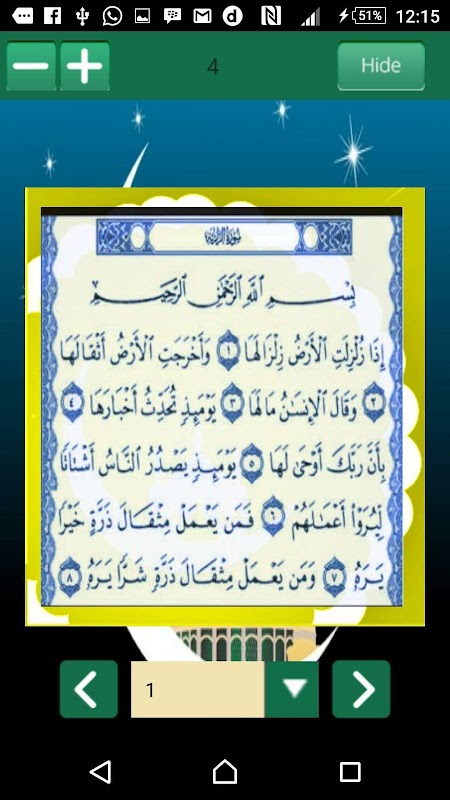 51% 12:15
4
Hide
سورة الزلزلة
بِسْمِ اللَّهِ الرَّحْمَٰنِ الرَّحِيمِ
إِذَا زُلْزِلَتِ الْأَرْضُ زِلْزَالَهَا ١ وَأَخْرَجَتِ الْأَرْضُ أَثْقَالَهَا
٢ وَقَالَ الْإِنسَٰنُ مَا لَهَا ٣ يَوْمَئِذٍ تُحَدِّثُ أَخْبَارَهَا ٤
بِأَنَّ رَبَّكَ أَوْحَىٰ لَهَا ٥ يَوْمَئِذٍ يَصْدُرُ النَّاسُ أَشْتَاتًا
لِّيُرَوْا أَعْمَٰلَهُمْ ٦ فَمَن يَعْمَلْ مِثْقَالَ ذَرَّةٍ خَيْرًا
يَرَهُ ٧ وَمَن يَعْمَلْ مِثْقَالَ ذَرَّةٍ شَرًّا يَرَهُ ٨
1